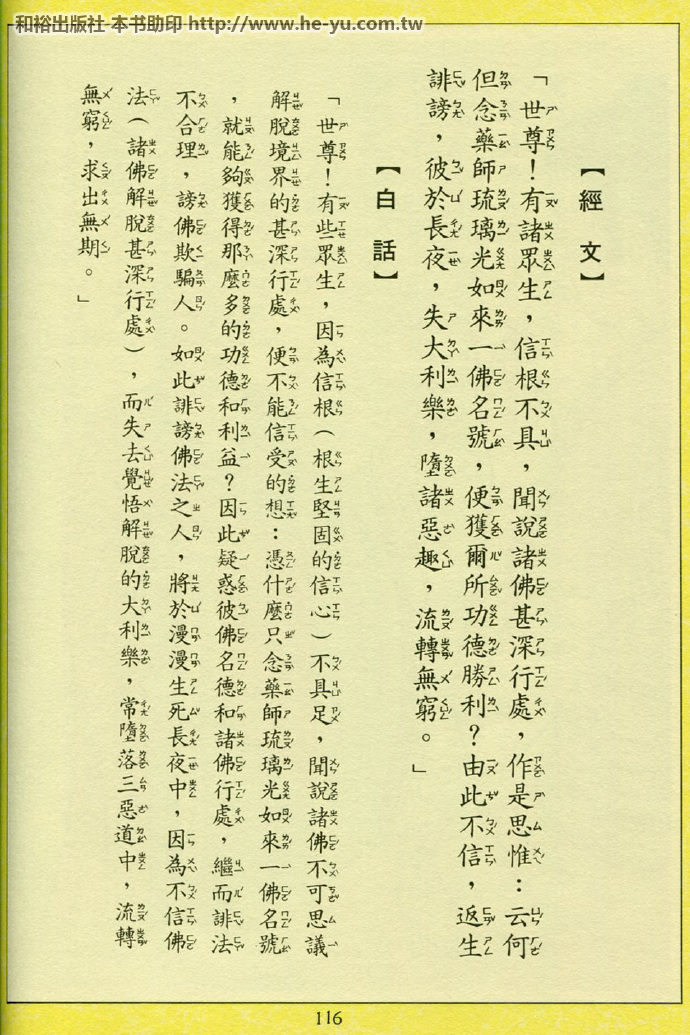 和裕出版社 本书助印 http://www.he-yu.com.tw
【經文】
「世尊！有諸眾生，信根不具，聞說諸佛甚深行處，作是思惟：云何
但念藥師琉璃光如來一佛名號，便獲爾所功德勝利？由此不信，返生
誹謗，彼於長夜，失大利樂，墮諸惡趣，流轉無窮。」
【白話】
「世尊！有些眾生，因為信根（根生堅固的信心）不具足，聞說諸佛不可思議
解脫境界的甚深行處，便不能信受的想：憑什麼只念藥師琉璃光如來一佛名號
，就能夠獲得那麼多的功德和利益？因此疑惑彼佛名德和諸佛行處，繼而誹法
不合理，謗佛欺騙人。如此誹謗佛法之人，將於漫漫生死長夜中，因為不信佛
法（諸佛解脫甚深行處），而失去覺悟解脫的大利樂，常墮落三惡道中，流轉
無窮，求出無期。」
116